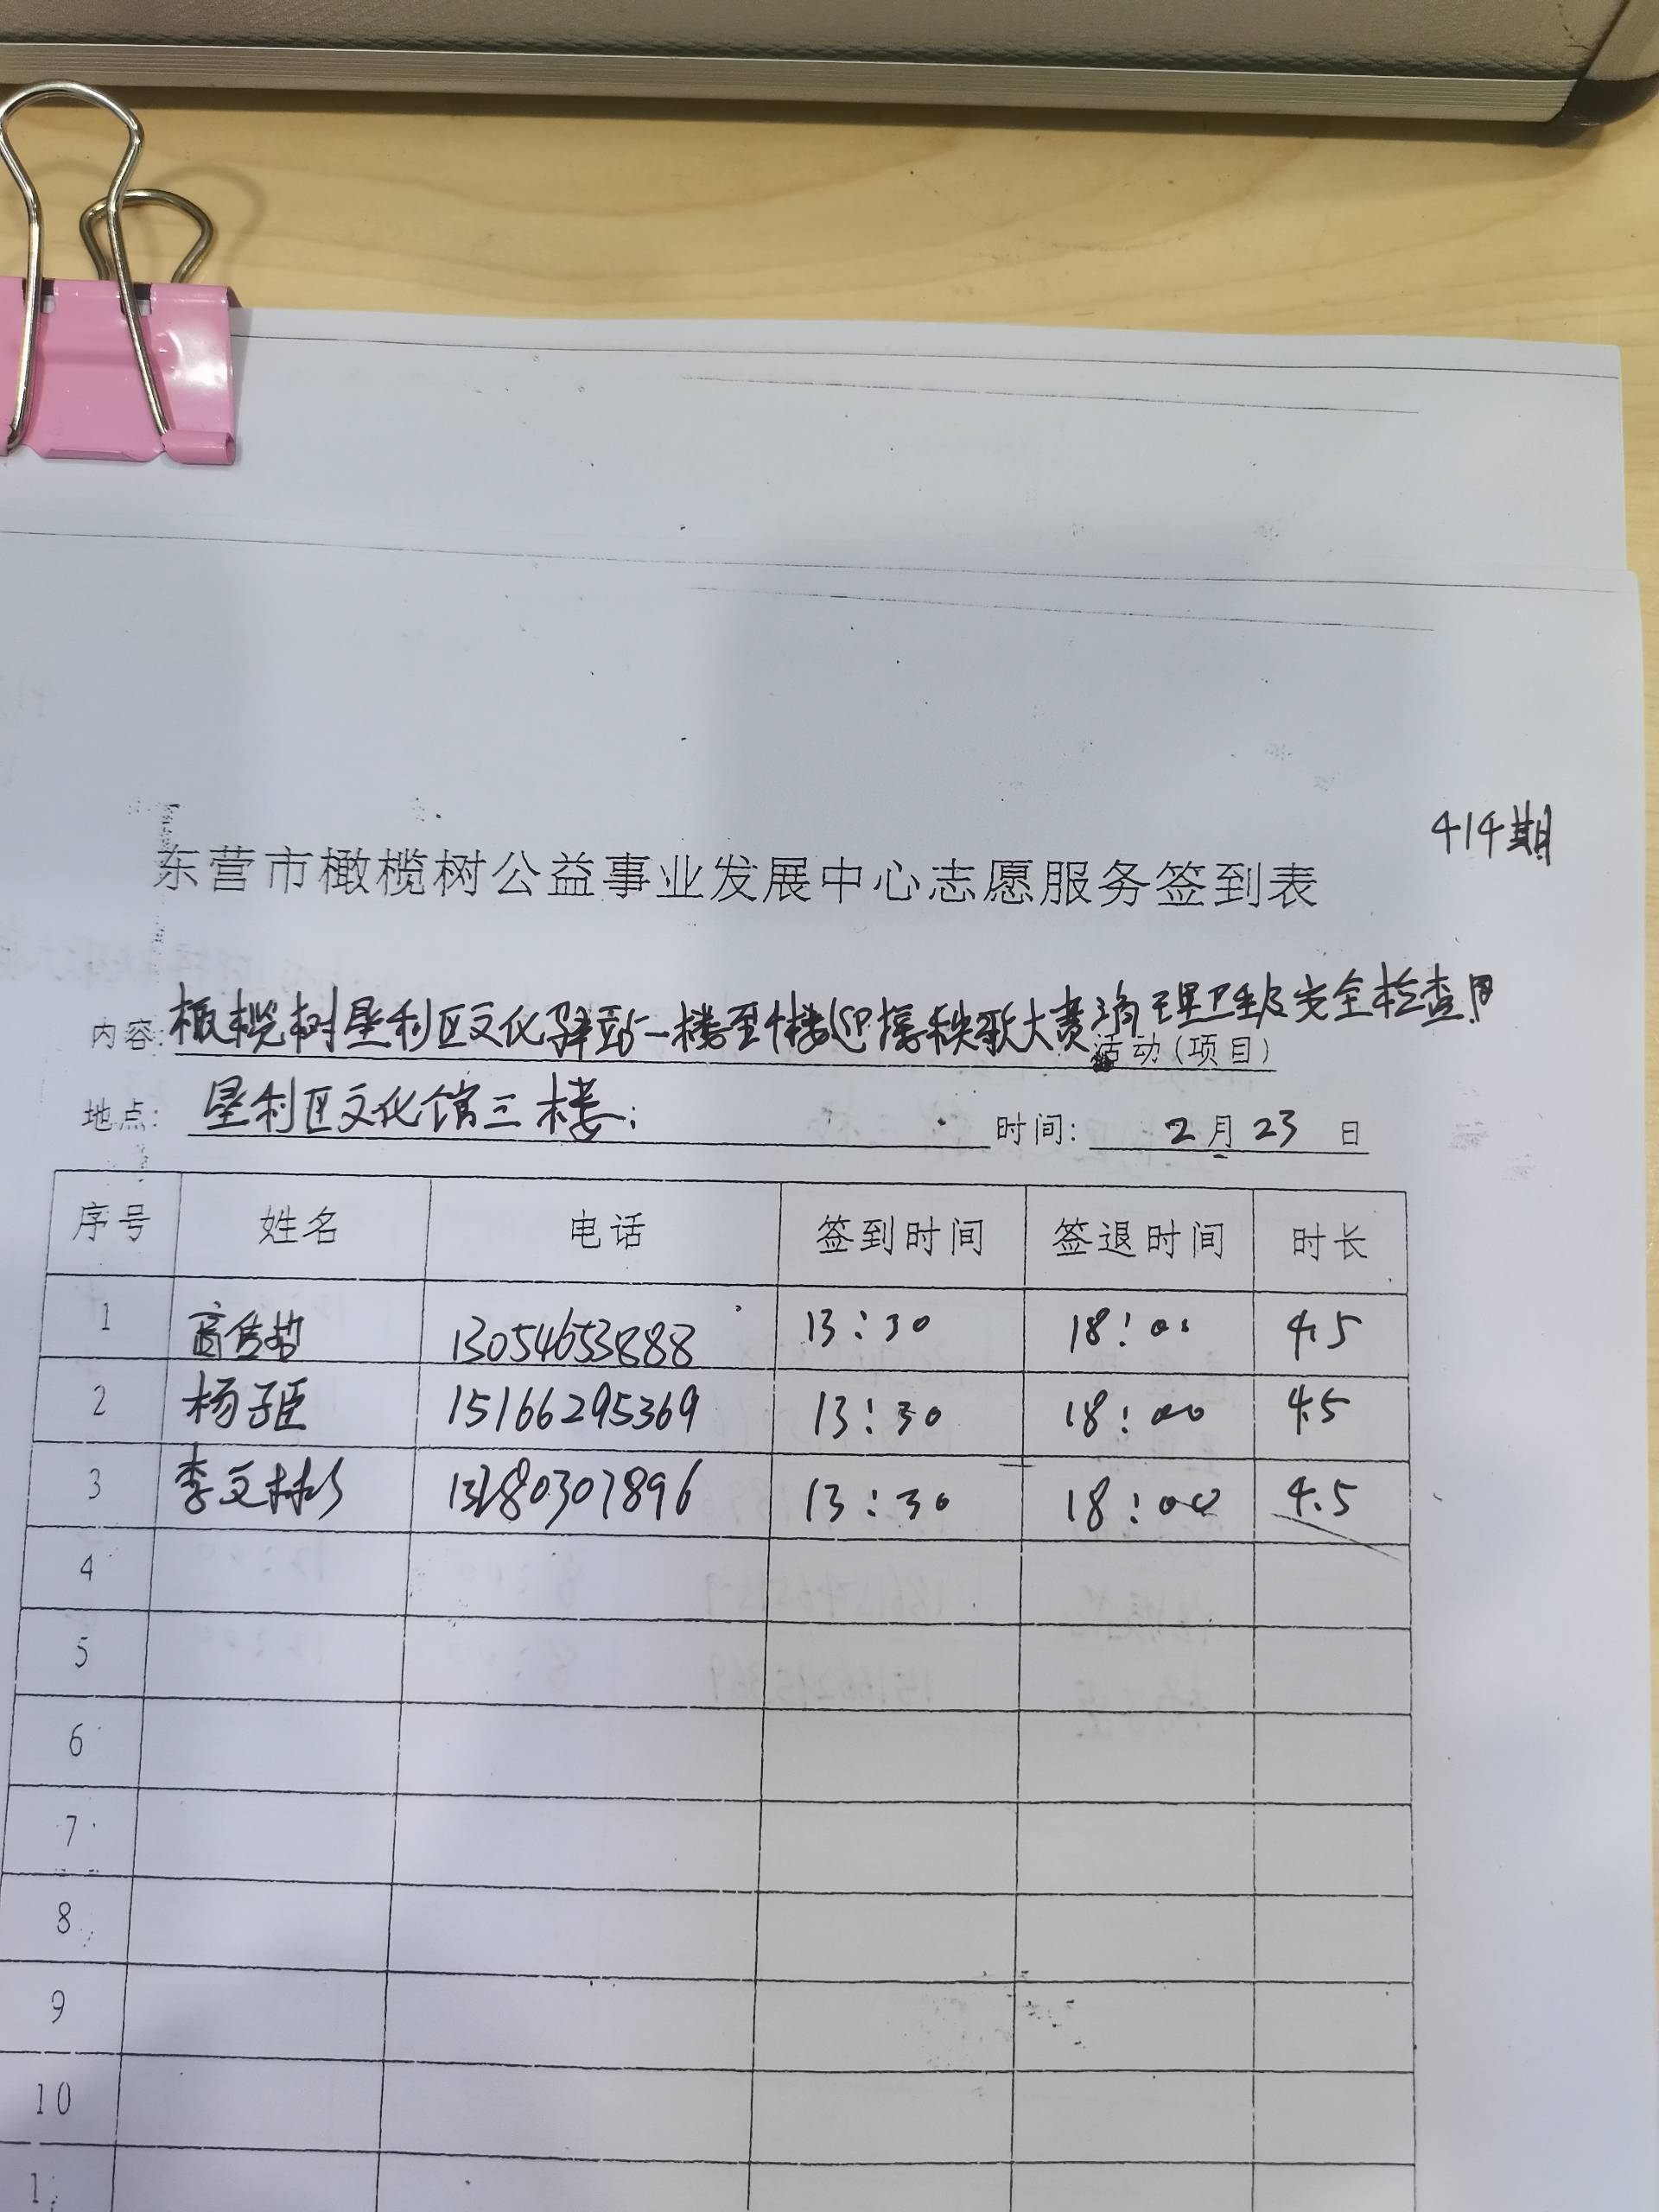 414期
东营市橄榄树公益事业发展中心志愿服务签到表
内容: 橄榄树垦利区文化驿站一楼至 楼迎接秧歌大赛清理卫生及安全检查 活动(项目)
地点: 垦利区文化馆三楼; 时间: 2月23日
序号 姓名 电话 签到时间 签退时间 时长
1 13054653888 13:30 18:00 4.5
2 杨子臣 15166295369 13:30 18:00 4.5
3 李文彬 13:30 18:00 4.5
4
5
6
7
8
9
10